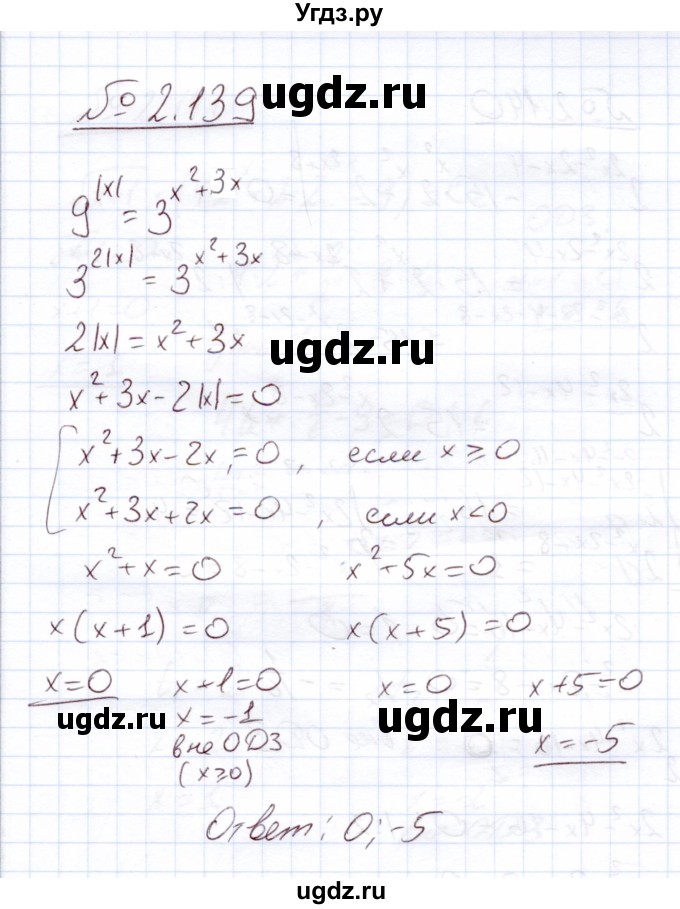 Угдз.ру
ugdz.ru
№ 2.139
9^|x| = 3^(x²+3x)
3^(2|x|) = 3^(x²+3x)
2|x| = x²+3x
ugdz.ru
x²+3x-2|x|=0
[ x²+3x-2x=0, если x⩾0
x²+3x+2x=0, если x<0
x²+x=0 x²+5x=0
x(x+1)=0 x(x+5)=0
x=0 x+1=0 x=0 x+5=0
ugdz.ru x=-1 ugdz.ru x=-5
вне ОДЗ
(x⩾0)
Ответ: 0; -5
ugdz.ru